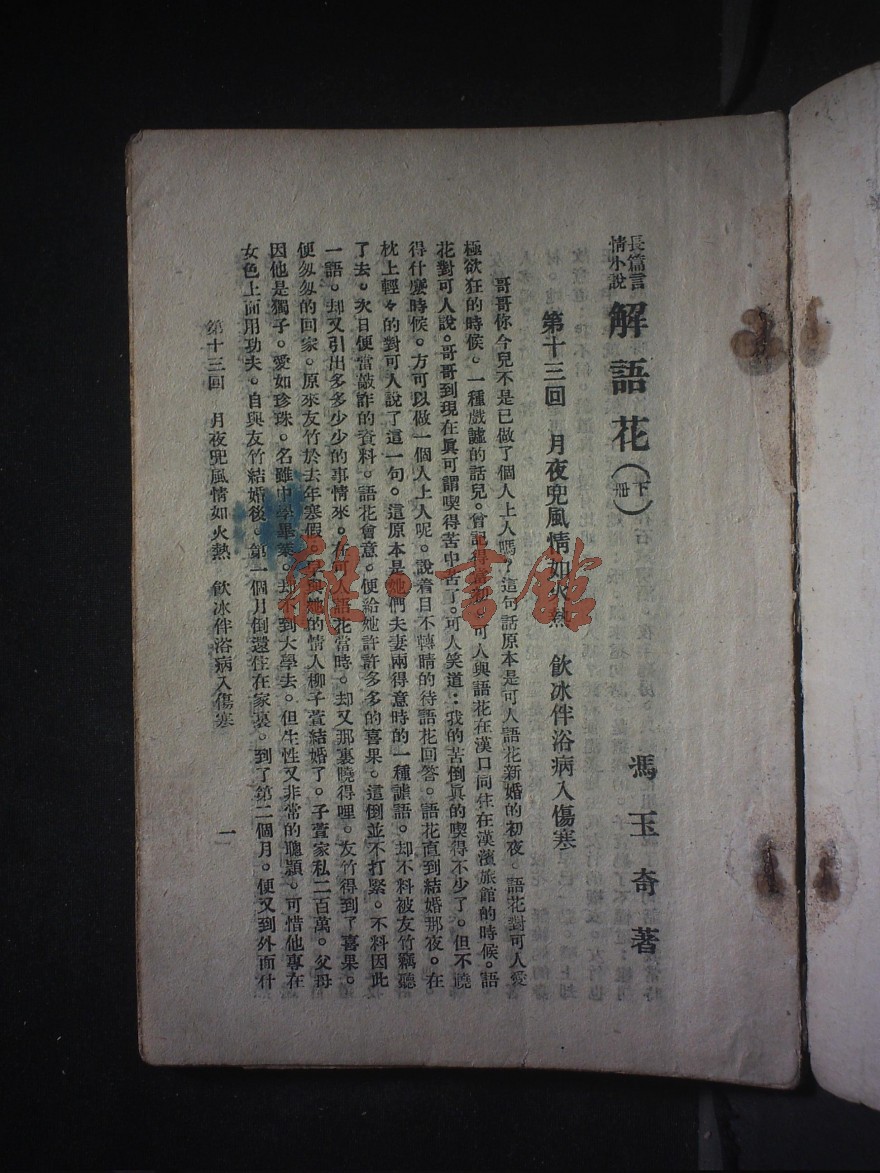 長篇言
情小說
解語花(下冊)
馮玉奇著
第十三回　月夜兜風情如火熱　飲冰伴浴病入傷寒
哥哥你今兒不是已做了個人上人嗎？這句話原本是可人語花新婚的初夜。語花對可人愛
極欲狂的時候。一種戲謔的話兒。曾記得當初。可人與語花在漢口同住在漢濱旅館的時候。語
花對可人說。哥哥到現在眞可謂喫得苦中苦了。可人笑道：我的苦倒眞的喫得不少了。但不曉
得什麼時候。方可以做一個人上人呢。說着目不轉睛的待語花回答。語花直到結婚那夜。在
枕上輕々的對可人說了這一句。這原本是她們夫妻兩得意時的一種謔語。却不料被友竹竊聽
了去。次日便當敲詐的資料。語花會意。便給她許許多多的喜果。這倒並不打緊。不料因此
一語。却又引出多多少少的事情來。在可人語花當時。却又那裏曉得哩。友竹得到了喜果。
便匆匆的回家。原來友竹於去年寒假。早與她的情人柳子萱結婚了。子萱家私二百萬。父母
因他是獨子。愛如珍珠。名雖中學畢業。却不到大學去。但生性又非常的聰穎。可惜他專在
女色上面用功夫。自與友竹結婚後。第一個月倒還住在家裏。到了第二個月。便又到外面什
第十三回　月夜兜風情如火熱　飲冰伴浴病入傷寒
一
雜·書館